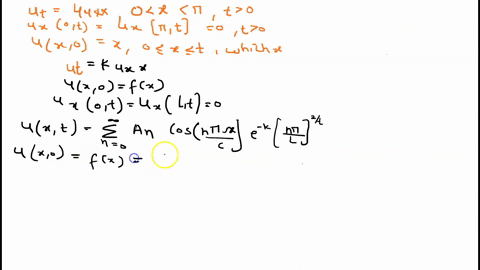 ut = 4uxx 0<x<π, t>0
ux (0,t) = ux [π,t] =0, t>0
u(x,0) = x, 0≤x≤t, which x
ut = k uxx
u(x,0) = f(x)
ux (0,t) = ux (L,t) = 0
u(x,t) = ∑ n=0 ∞ An cos(nπx/c] e^-k [nπ/L]^2t
u(x,0) = f(x) =